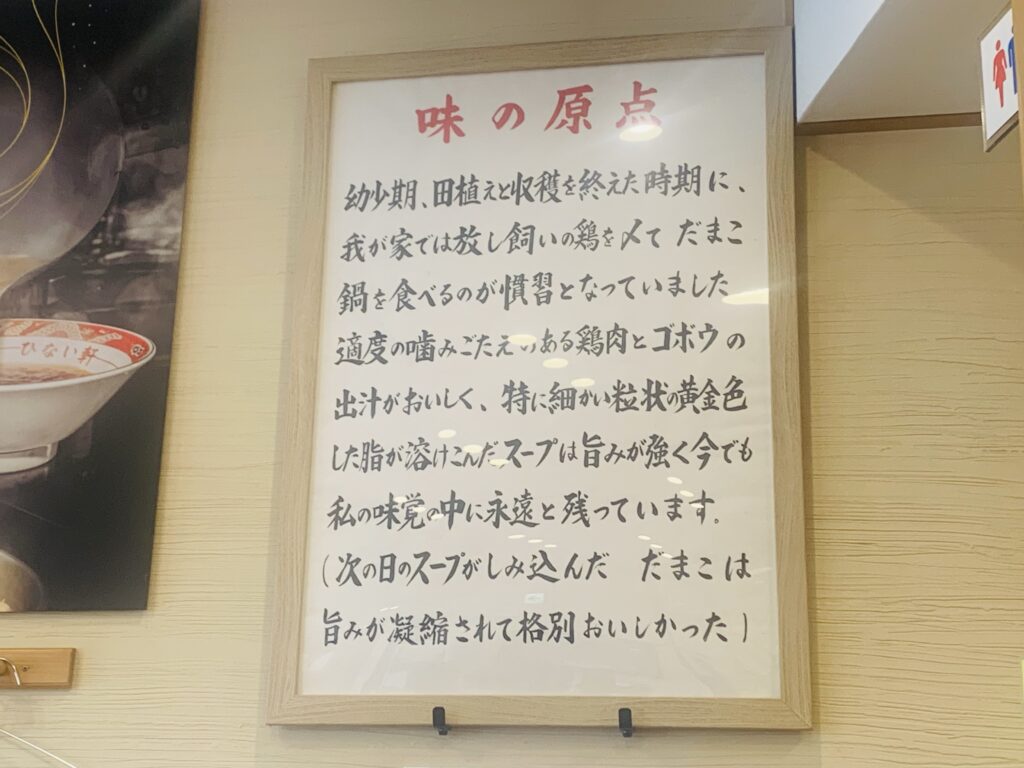 味の原点
幼少期、田植えと収穫を終えた時期に、
我が家では放し飼いの鶏を〆て だまこ
鍋を食べるのが慣習となっていました
適度の噛みごたえのある鶏肉とゴボウの
出汁がおいしく、特に細かい粒状の黄金色
した脂が溶けこんだスープは旨みが強く今でも
私の味覚の中に永遠と残っています。
(次の日のスープがしみ込んだ だまこは
旨みが凝縮されて格別おいしかった)
ひない軒